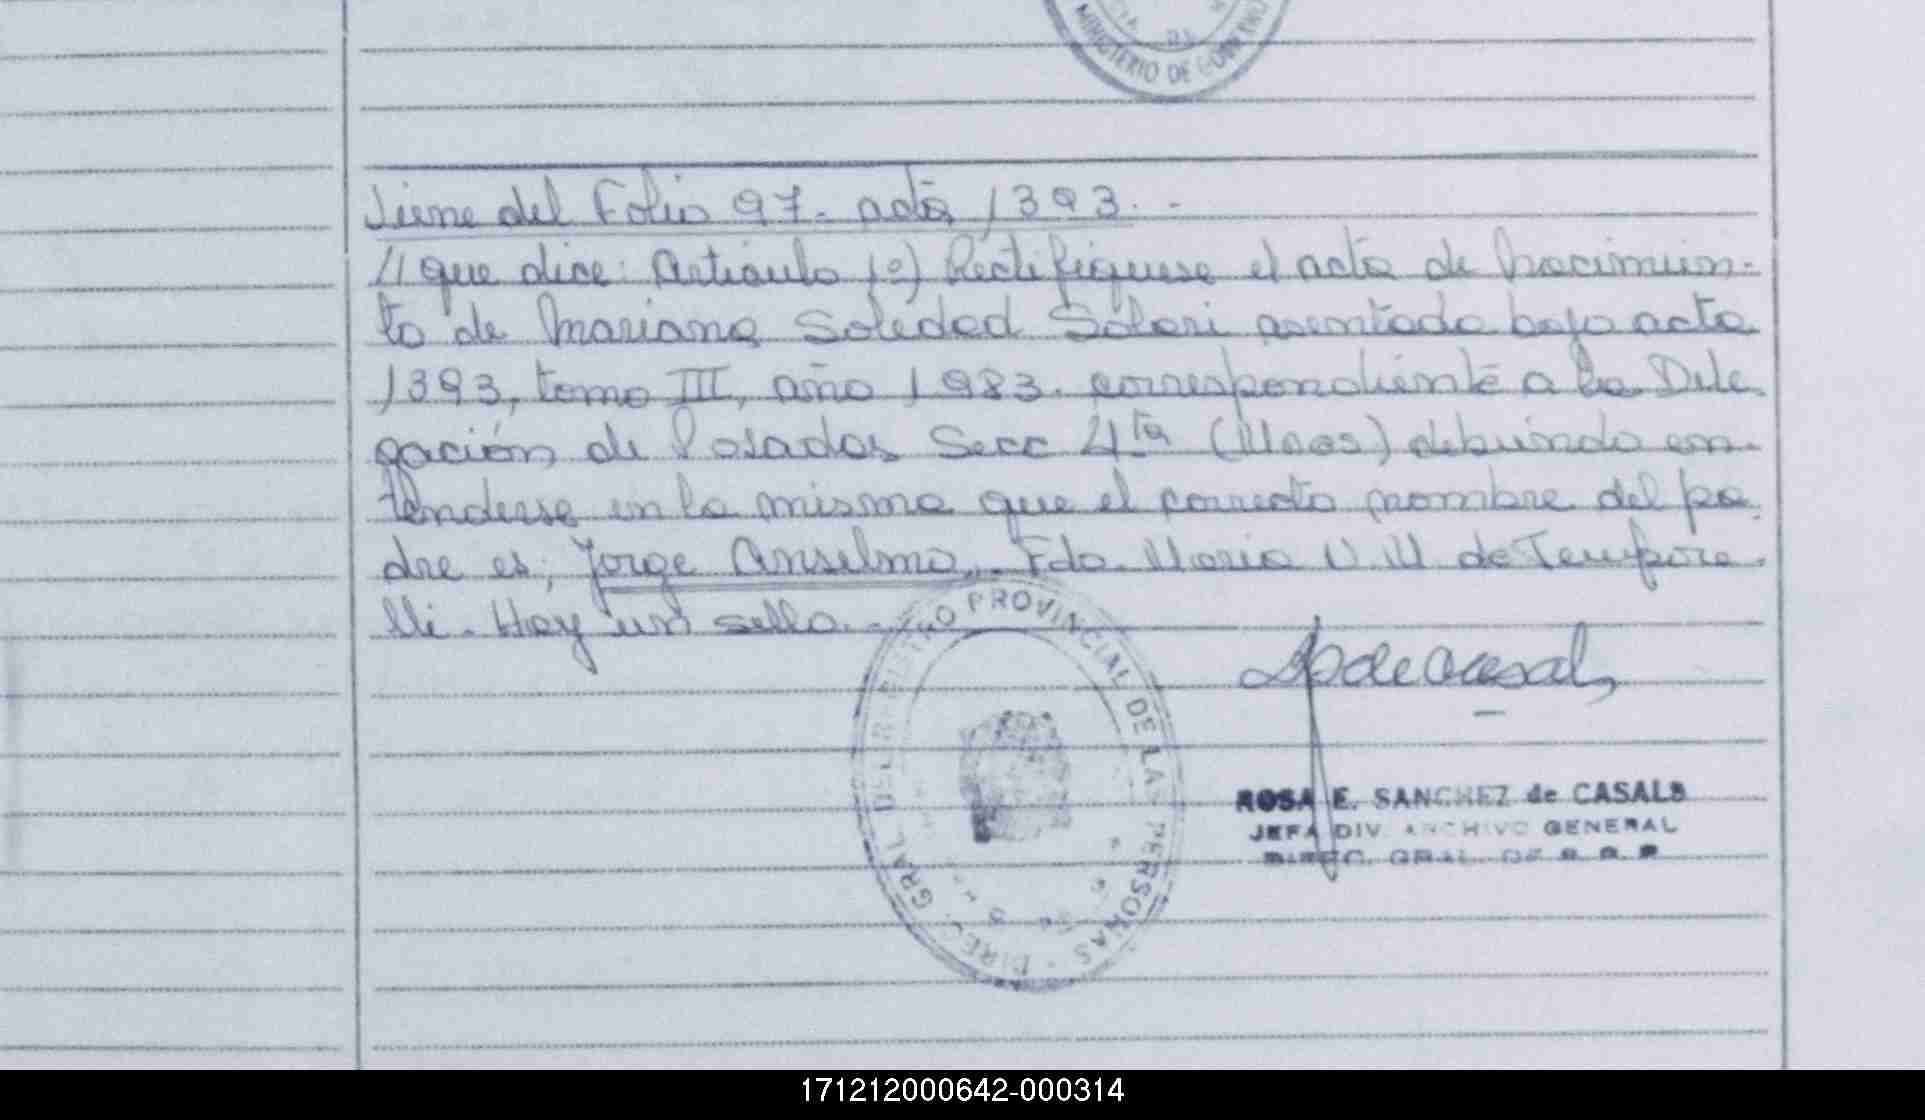 MINISTERIO DE GOBIERNO
Viene del Folio 97. acta 1393. -
// que dice: Artículo 1º) Rectifíquese el acta de Nacimien-
to de Mariana Soledad Solari asentada bajo acta
1393, tomo III, año 1983. correspondiente a la Dele
gación de Posadas Secc 4ta (Mnes) debiendo en-
tenderse en la misma que el correcto nombre del pa
dre es; Jorge Anselmo,. Fdo. María U. M de Tempore
lli. Hay un sello. -
DIREC. GRAL DEL REGISTRO PROVINCIAL DE LAS PERSONAS
de Casals
ROSA E. SANCHEZ de CASALS
JEFA DIV. ARCHIVO GENERAL
DIREC. GRAL. DE R. P. P
171212000642-000314